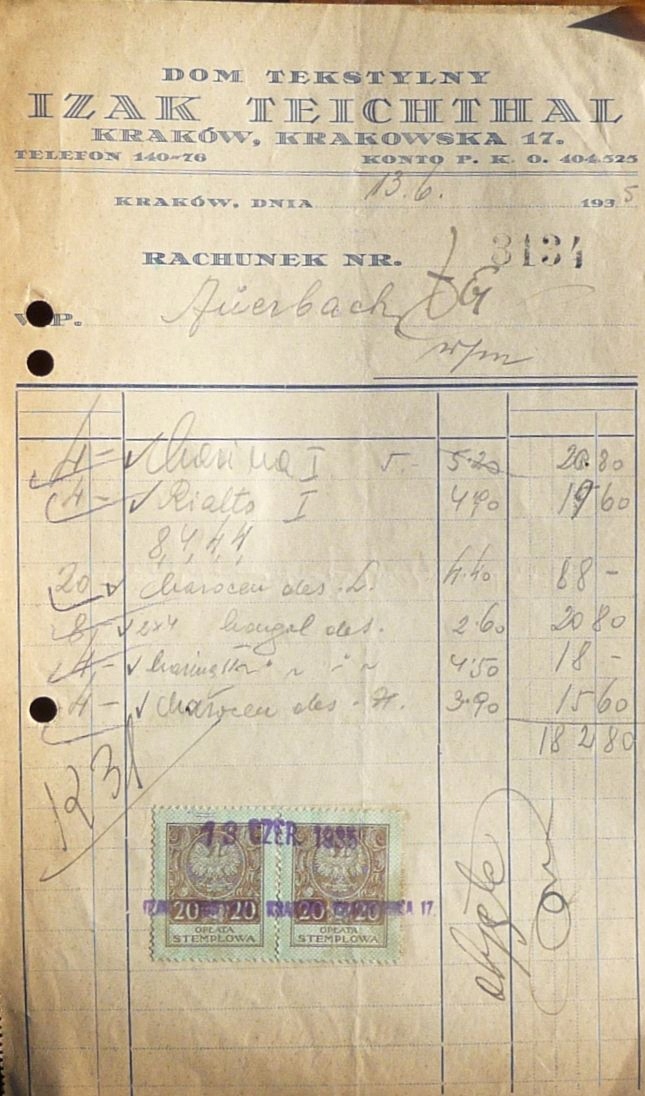 DOM TEKSTYLNY
IZAK TEICHTHAL
KRAKÓW, KRAKOWSKA 17.
TELEFON 140-76 KONTO P. K. O. 404.525
KRAKÓW, DNIA 13.6. 1935
RACHUNEK NR. 3134
W P. Auerbach
w/m
4 - I 5.- 5.20 20.80
4 - Rialto I 4.90 19 60
8, 4, 4, 4
20 des. 4.40 88 -
8, 2x4 des. 2.60 20 80
4, - 4.50 18 -
4 - des. 3.90 15 60
182 80
1231
13 CZER. 1935
20 20 20 20
KRAKÓW, KRAKOWSKA 17.
OPŁATA STEMPLOWA OPŁATA STEMPLOWA